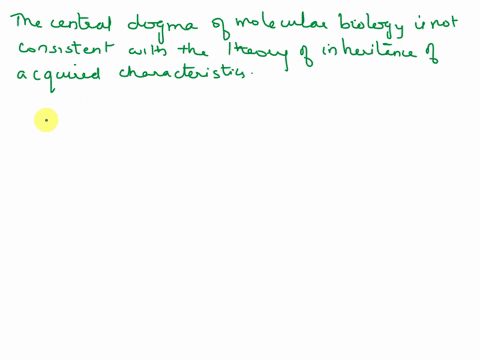 The central dogma of molecular biology is not
consistent with the theory of inheritence of
acquired characteristics.